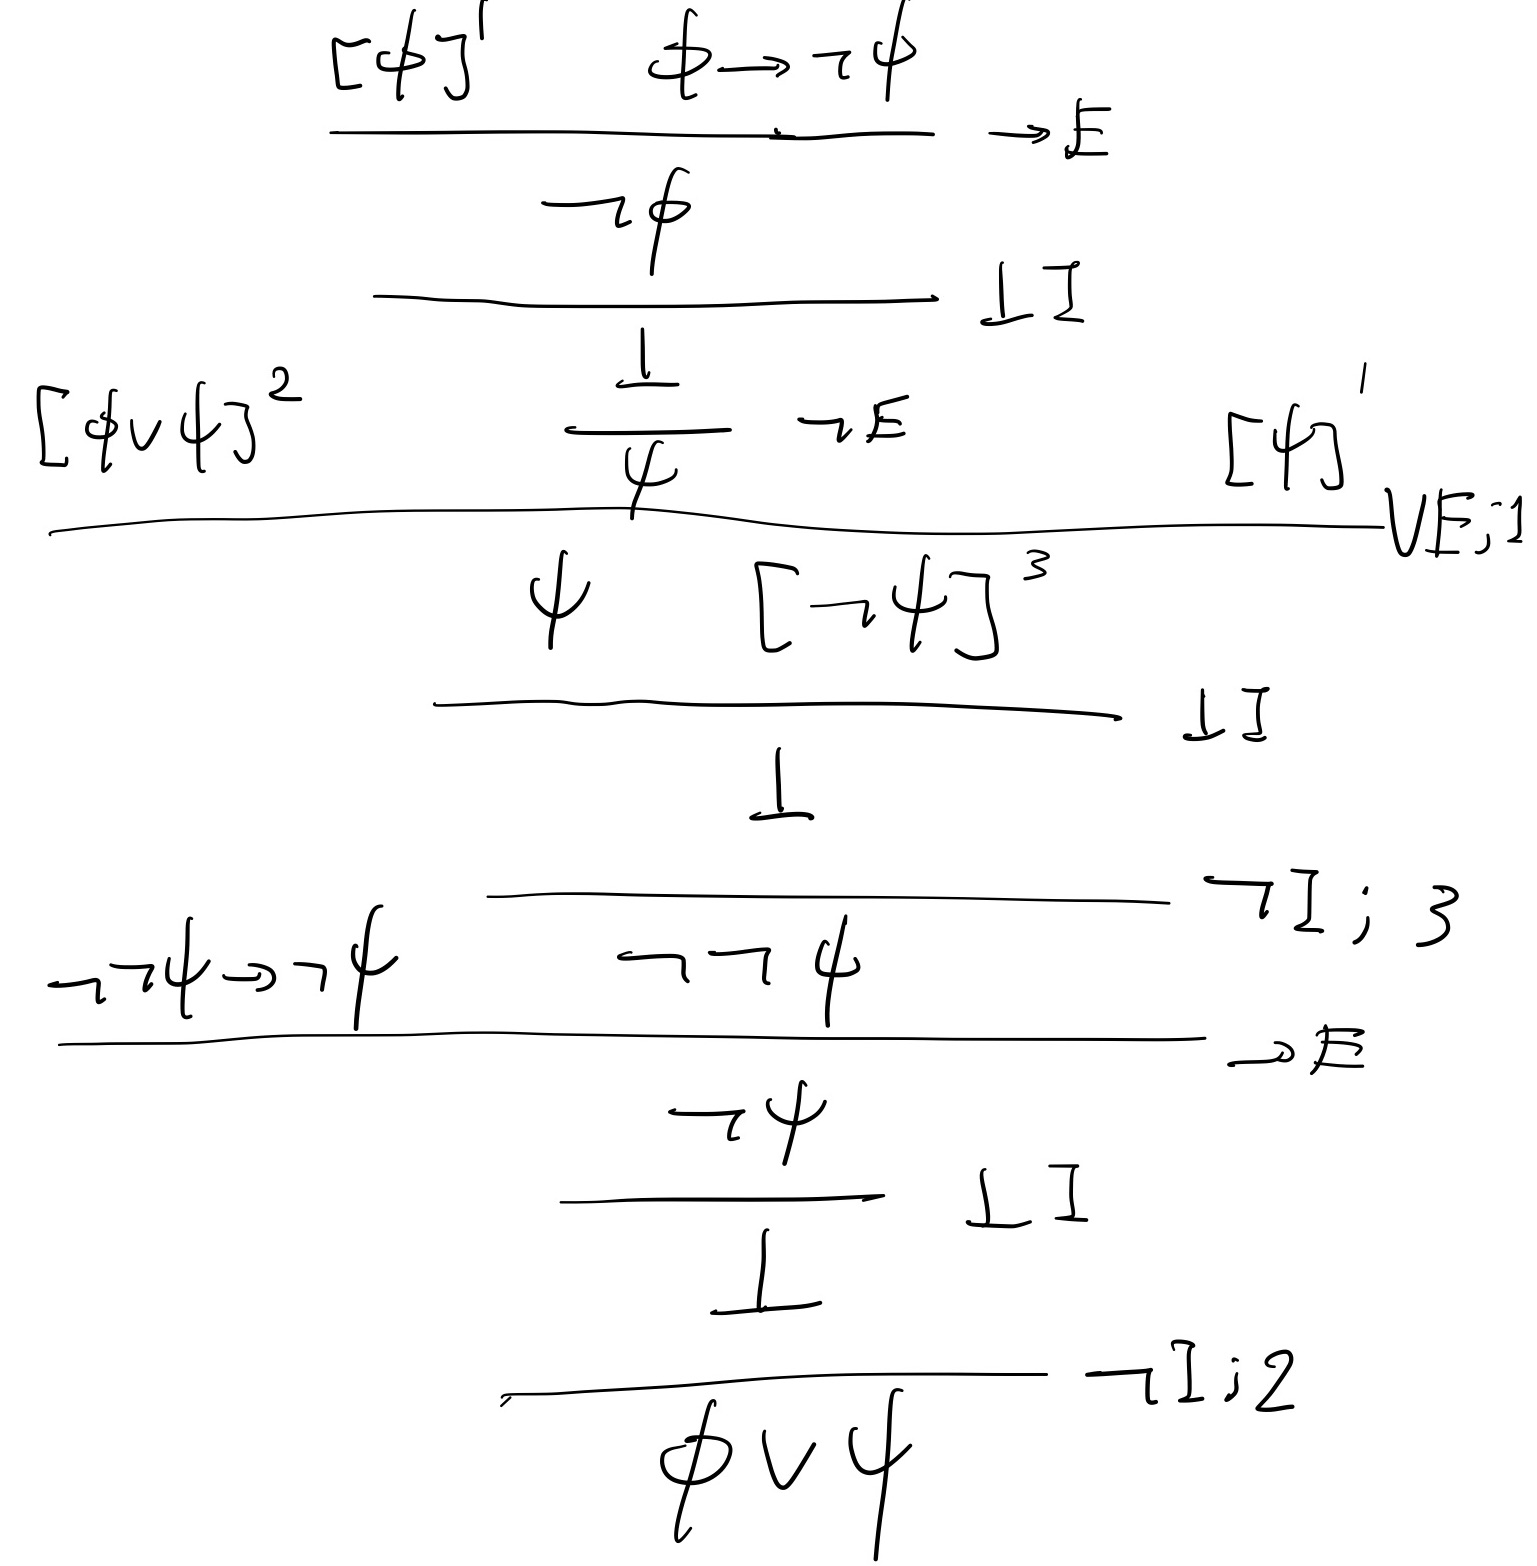 [ϕ]¹ ϕ → ¬ϕ
→E
¬ϕ
⊥I
⊥
[ϕ∨ψ]² ¬E [ψ]¹
ψ
∨E;1
ψ [¬ψ]³
⊥I
⊥
¬I;3
¬¬ψ→¬ψ ¬¬ψ
→E
¬ψ
⊥I
⊥
¬I;2
ϕ∨ψ